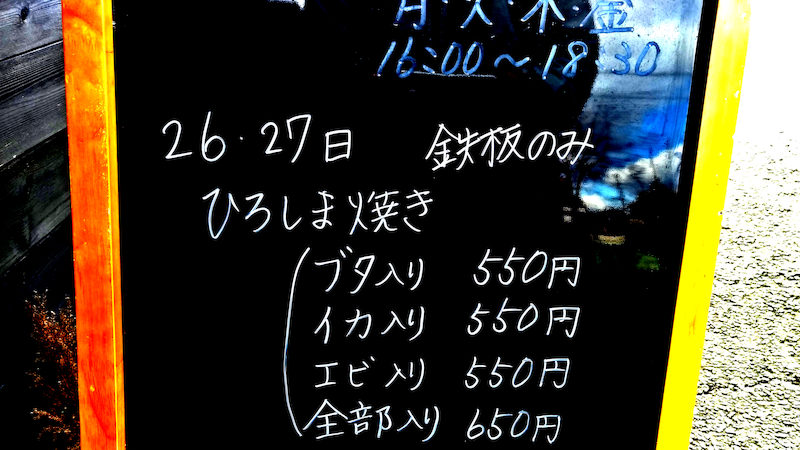 月・火・木・金
16:00～18:30
26・27日 鉄板のみ
ひろしま焼き
ブタ入り 550円
イカ入り 550円
エビ入り 550円
全部入り 650円